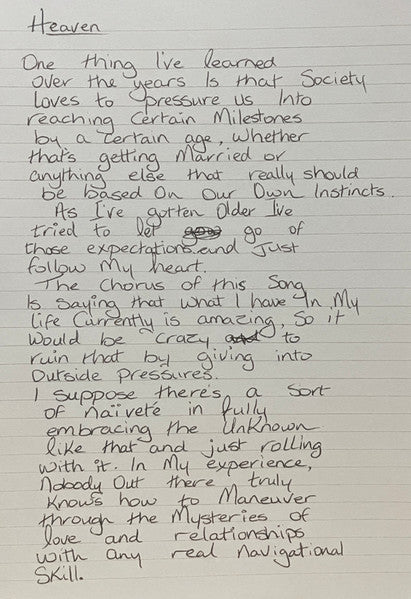 Heaven
One thing I've learned
over the years Is that Society
loves to pressure us Into
reaching Certain Milestones
by a certain age, whether
that's getting Married or
anything else that really should
be based On Our Own Instincts.
As I've gotten Older I've
tried to let go of
those expectations and Just
follow My heart.
The Chorus of this Song
Is Saying that what I have In My
life Currently is amazing, So it
would be crazy to
ruin that by giving into
Outside Pressures.
I suppose there's a Sort
of naïveté in fully
embracing the Unknown
like that and just rolling
with it. In My experience,
Nobody Out there truly
knows how to Maneuver
through the Mysteries of
love and relationships
with any real Navigational
Skill.